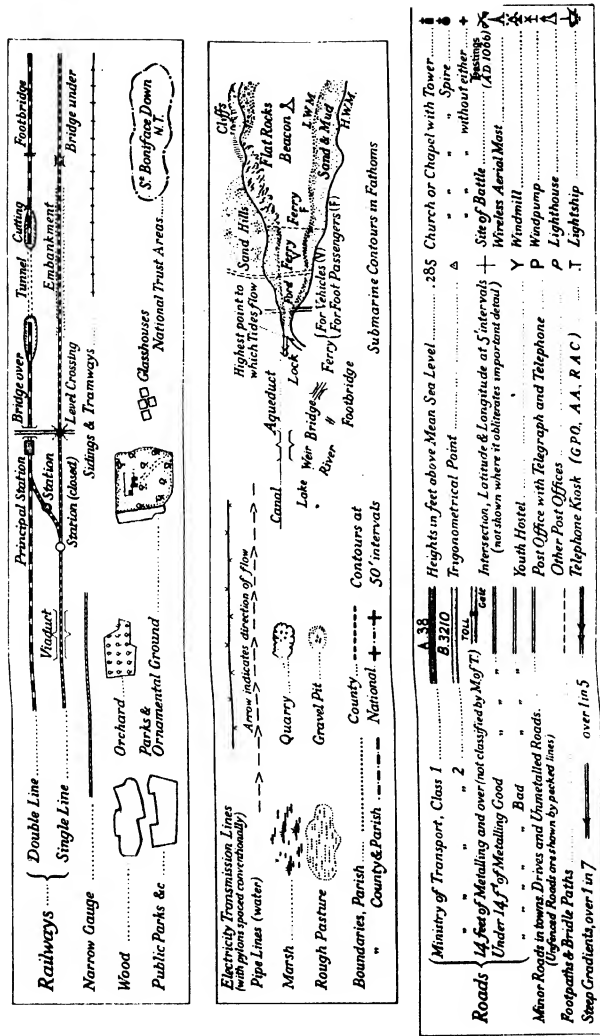 Railways
Double Line
Single Line
Viaduct
Principal Station
Station
Station (closed)
Bridge over
Level Crossing
Tunnel
Cutting
Embankment
Footbridge
Bridge under
Narrow Gauge
Sidings & Tramways
Wood
Orchard
Public Parks &c
Parks &
Ornamental Ground
Glasshouses
National Trust Areas
St Boniface Down
N.T.
Electricity Transmission Lines
(with pylons spaced conventionally)
Pipe Lines (water)
Arrow indicates direction of flow
Marsh
Quarry
Rough Pasture
Gravel Pit
Boundaries, Parish
County
" County & Parish
National
Contours at
50' intervals
Canal
Aqueduct
Lake
Weir
Bridge
River
"
Footbridge
Lock
Highest point to
which Tides flow
Ford
Ferry
V
Ferry
F
Ferry
For Vehicles (V)
For Foot Passengers (F)
Sand Hills
Cliffs
Flat Rocks
Beacon
L.W.M.
Sand & Mud
H.W.M.
Submarine Contours in Fathoms
Roads
Ministry of Transport, Class 1
A 38
" " " 2
B.3210
14 feet of Metalling and over (not classified by M of T.)
TOLL
Gate
Under 14 ft of Metalling Good
" " " " Bad
Minor Roads in towns, Drives and Unmetalled Roads.
(Unfenced Roads are shown by pecked lines)
Footpaths & Bridle Paths
Steep Gradients, over 1 in 7
over 1 in 5
Heights in feet above Mean Sea Level .285
Trigonometrical Point
Intersection, Latitude & Longitude at 5' intervals
(not shown where it obliterates important detail)
Youth Hostel Y
Post Office with Telegraph and Telephone P
Other Post Offices P
Telephone Kiosk (GPO, AA, RAC) .T
Church or Chapel with Tower
" " " " Spire
" " " " without either
Site of Battle
Hastings
(AD 1066)
Wireless Aerial Mast
Windmill
Windpump
Lighthouse
Lightship